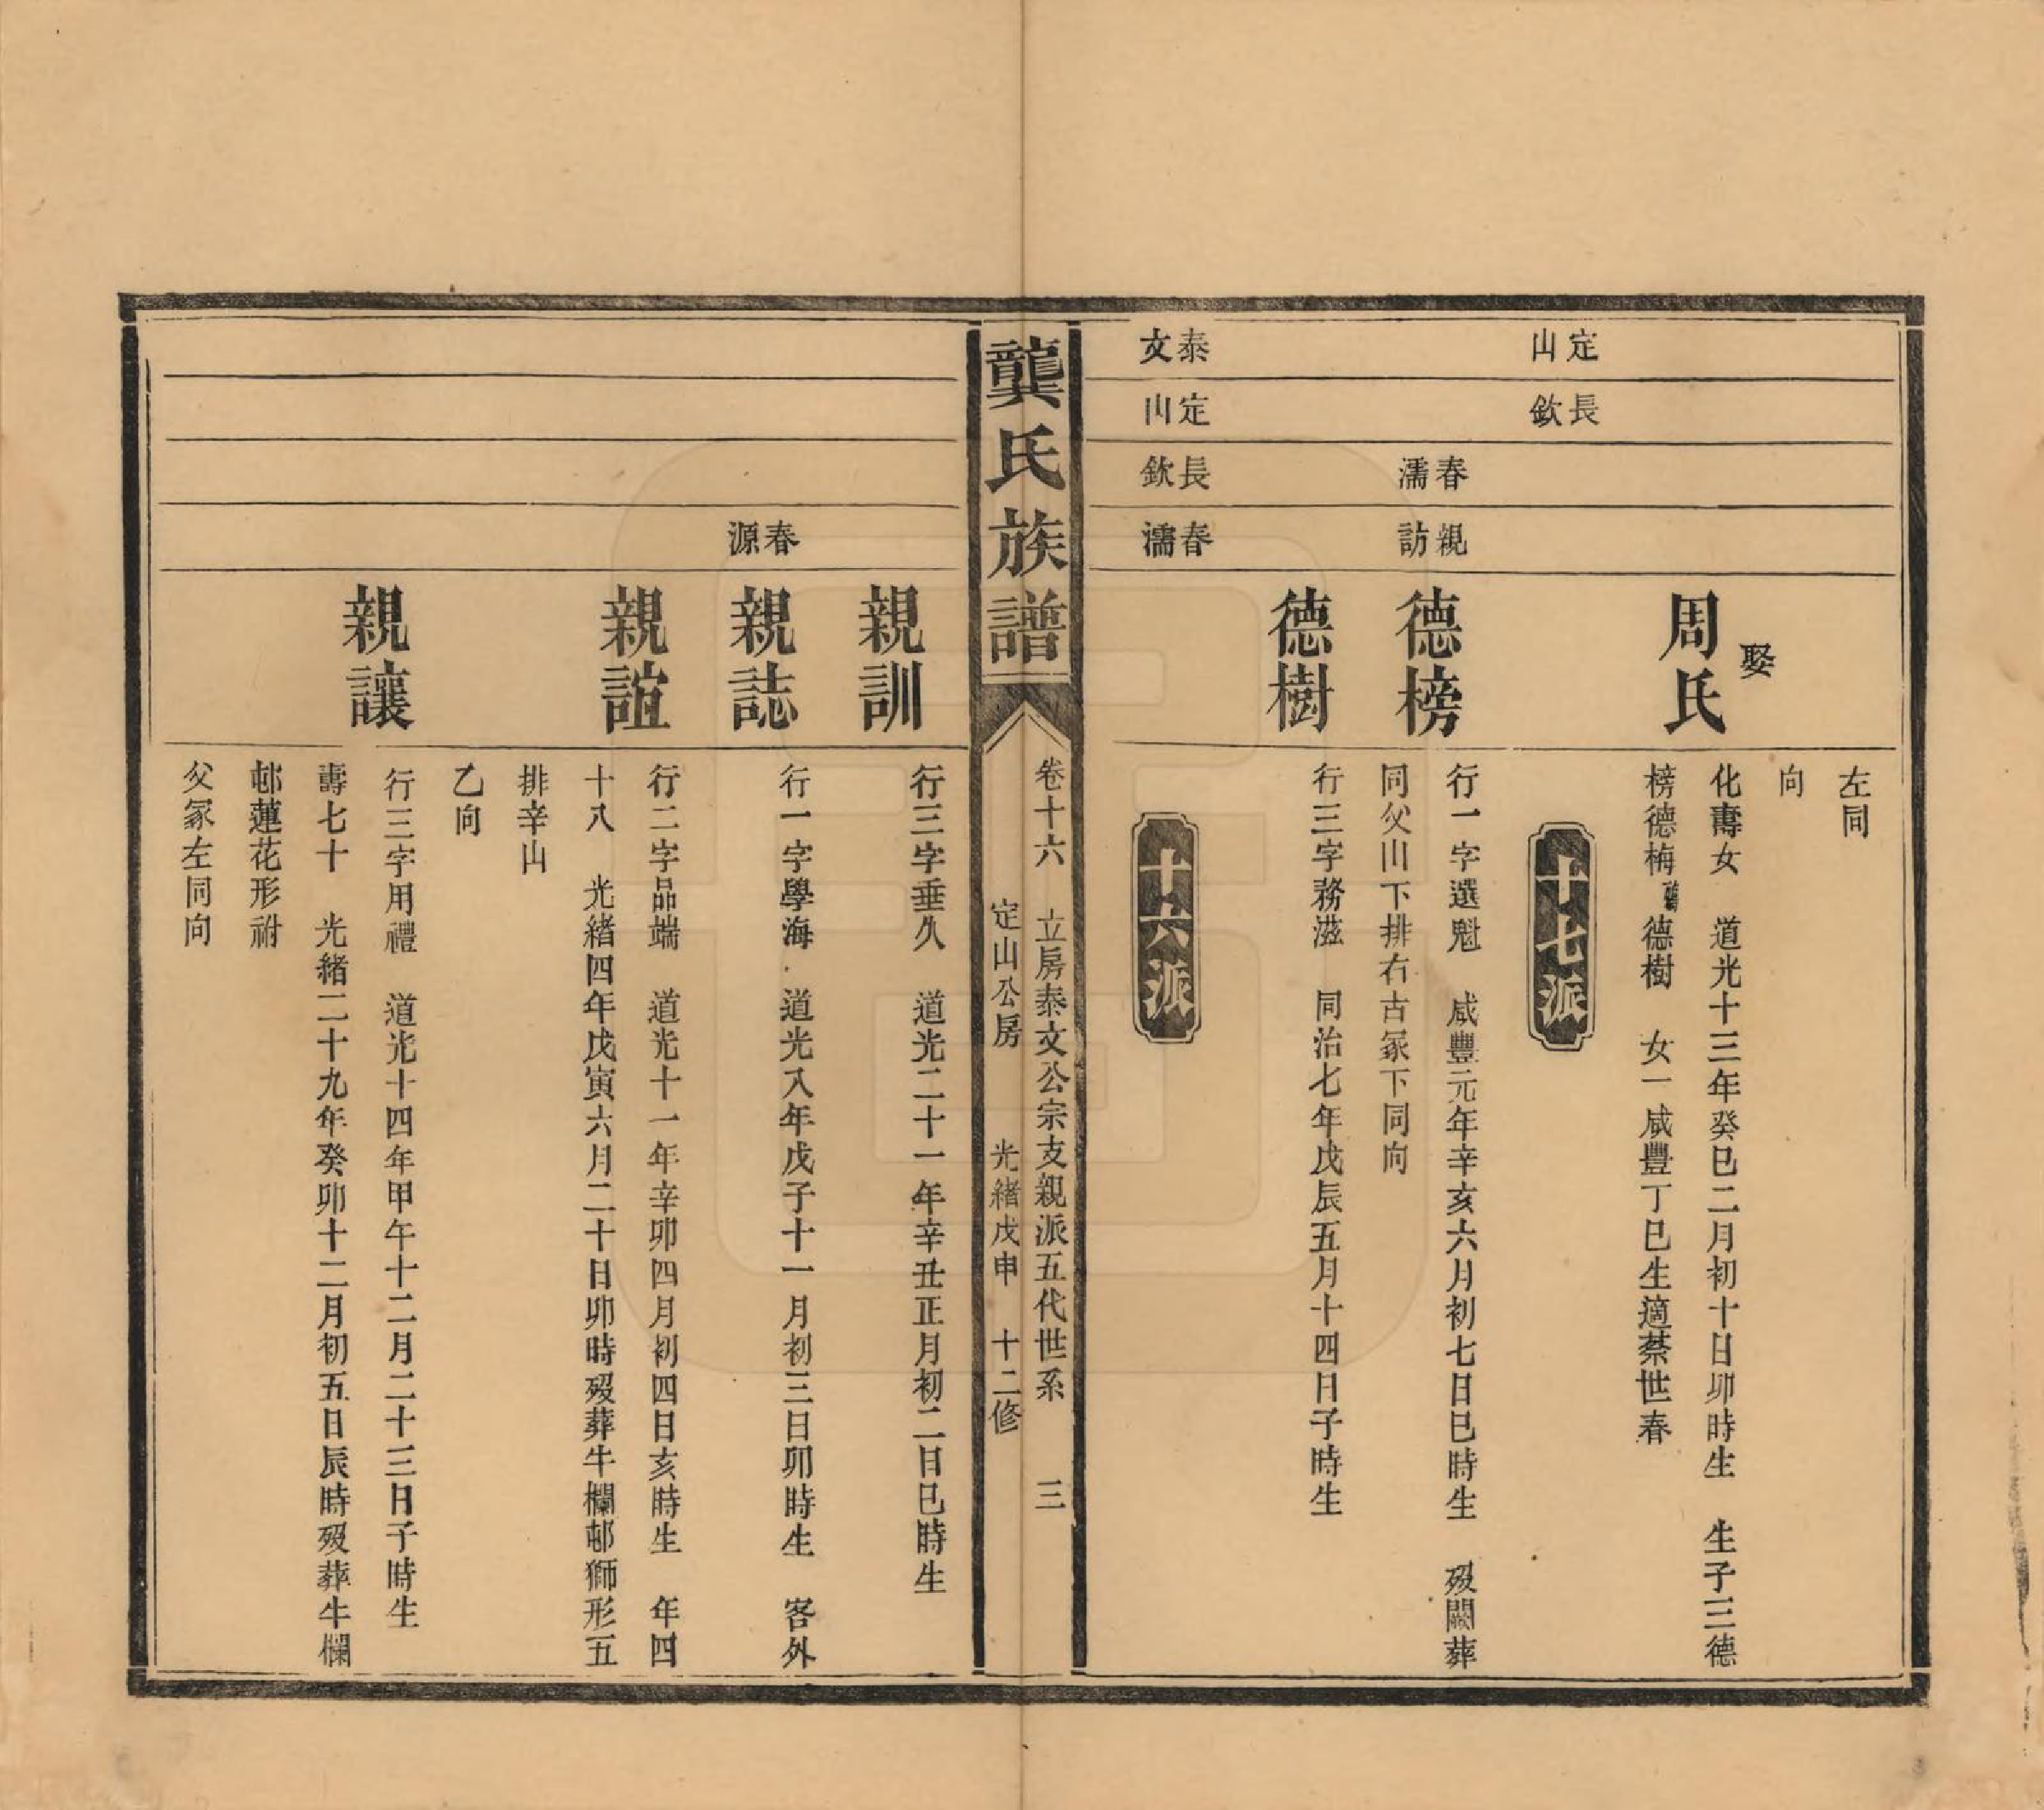 左同
向
定山
長欽
娶
周氏
化壽女　道光十三年癸巳二月初十日卯時生　生子三德
榜德梅　德樹　女一咸豐丁巳生適蔡世春
十七派
春濡
親訪
德榜
行一字選魁　咸豐元年辛亥六月初七日巳時生　歿闕葬
同父山下排右古冢下同向
德樹
行三字務滋　同治七年戊辰五月十四日子時生
泰文
定山
長欽
春濡
十六派
龔氏族譜
卷十六　立房泰文公宗支親派五代世系　三
定山公房　光緒戊申　十二修
親訓
行三字垂久　道光二十一年辛丑正月初二日巳時生
春源
親誌
行一字學海　道光八年戊子十一月初三日卯時生　客外
親誼
行二字品端　道光十一年辛卯四月初四日亥時生　年四
十八　光緒四年戊寅六月二十日卯時歿葬牛欄邨獅形五
排辛山
乙向
親讓
行三字用禮　道光十四年甲午十二月二十三日子時生
壽七十　光緒二十九年癸卯十二月初五日辰時歿葬牛欄
邨蓮花形祔
父冢左同向